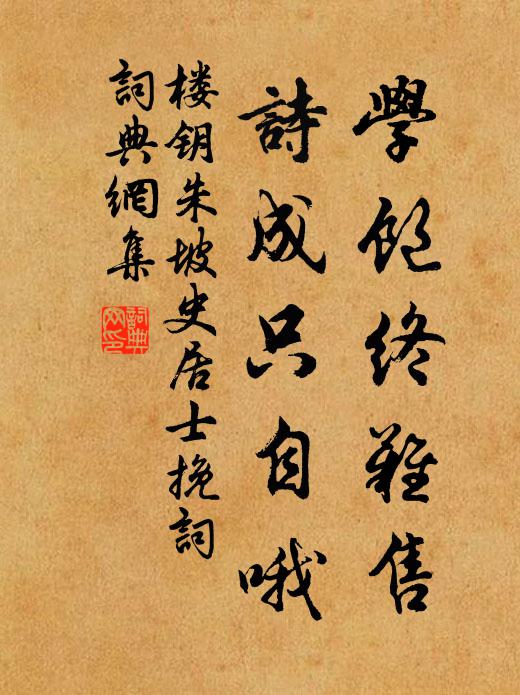 學飽終難售
詩成只自哦
楼钥朱坡史居士挽詞
詞典網集
詞典網印